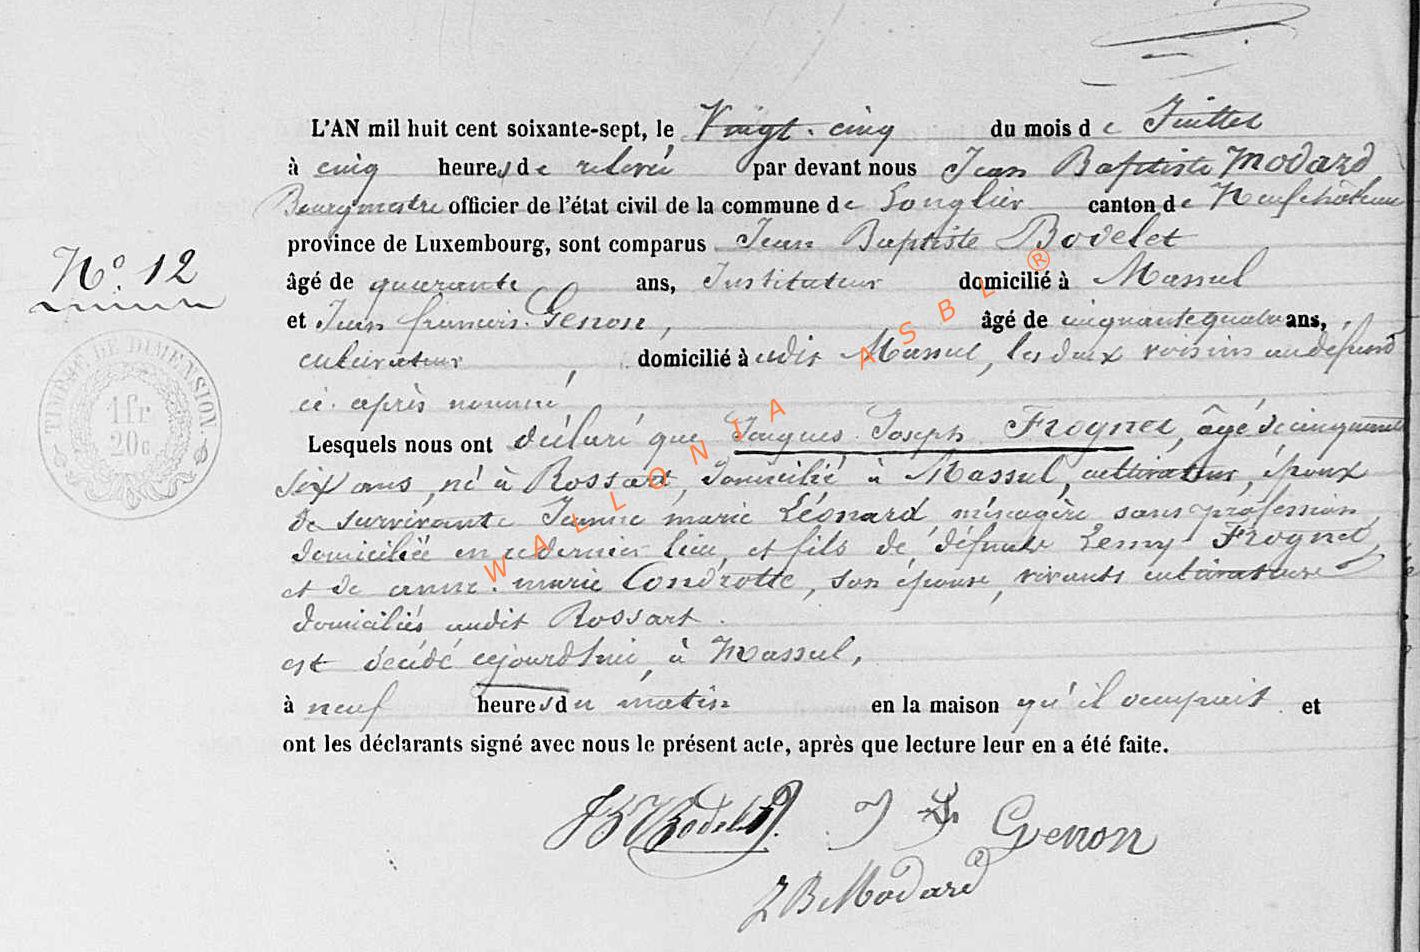 L'AN mil huit cent soixante-sept, le Vingt-cinq du mois de Juillet
à cinq heures de relevée par devant nous Jean Baptiste Modard
Bourgmestre officier de l'état civil de la commune de Longlier canton de Neufchâteau
province de Luxembourg, sont comparus Jean Baptiste Bodelet
N° 12
âgé de quarante ans, Instituteur domicilié à Massul
et Jean françois Genon, âgé de cinquante quatre ans,
cultivateur, domicilié à audit Massul, les deux voisins au défunt
ci-après nommé
Lesquels nous ont déclaré que Jacques Joseph Frognet, âgé de cinquante
six ans, né à Rossart, domicilié à Massul, cultivateur, époux
de survivante Jeanne marie Léonard ménagère sans profession,
domiciliée en ce dernier lieu, et fils de défunts Frognet,
et de anne marie Condrotte, son épouse, vivants cultivateurs
domiciliés audit Rossart.
est décédé cejourd'hui, à Massul,
à neuf heures du matin en la maison qu'il occupait et
ont les déclarants signé avec nous le présent acte, après que lecture leur en a été faite.
TIMBRE DE DIMENSION
1fr
20c
WALLONIA ASBL ®
JB Bodelet J F Genon
J B Modard